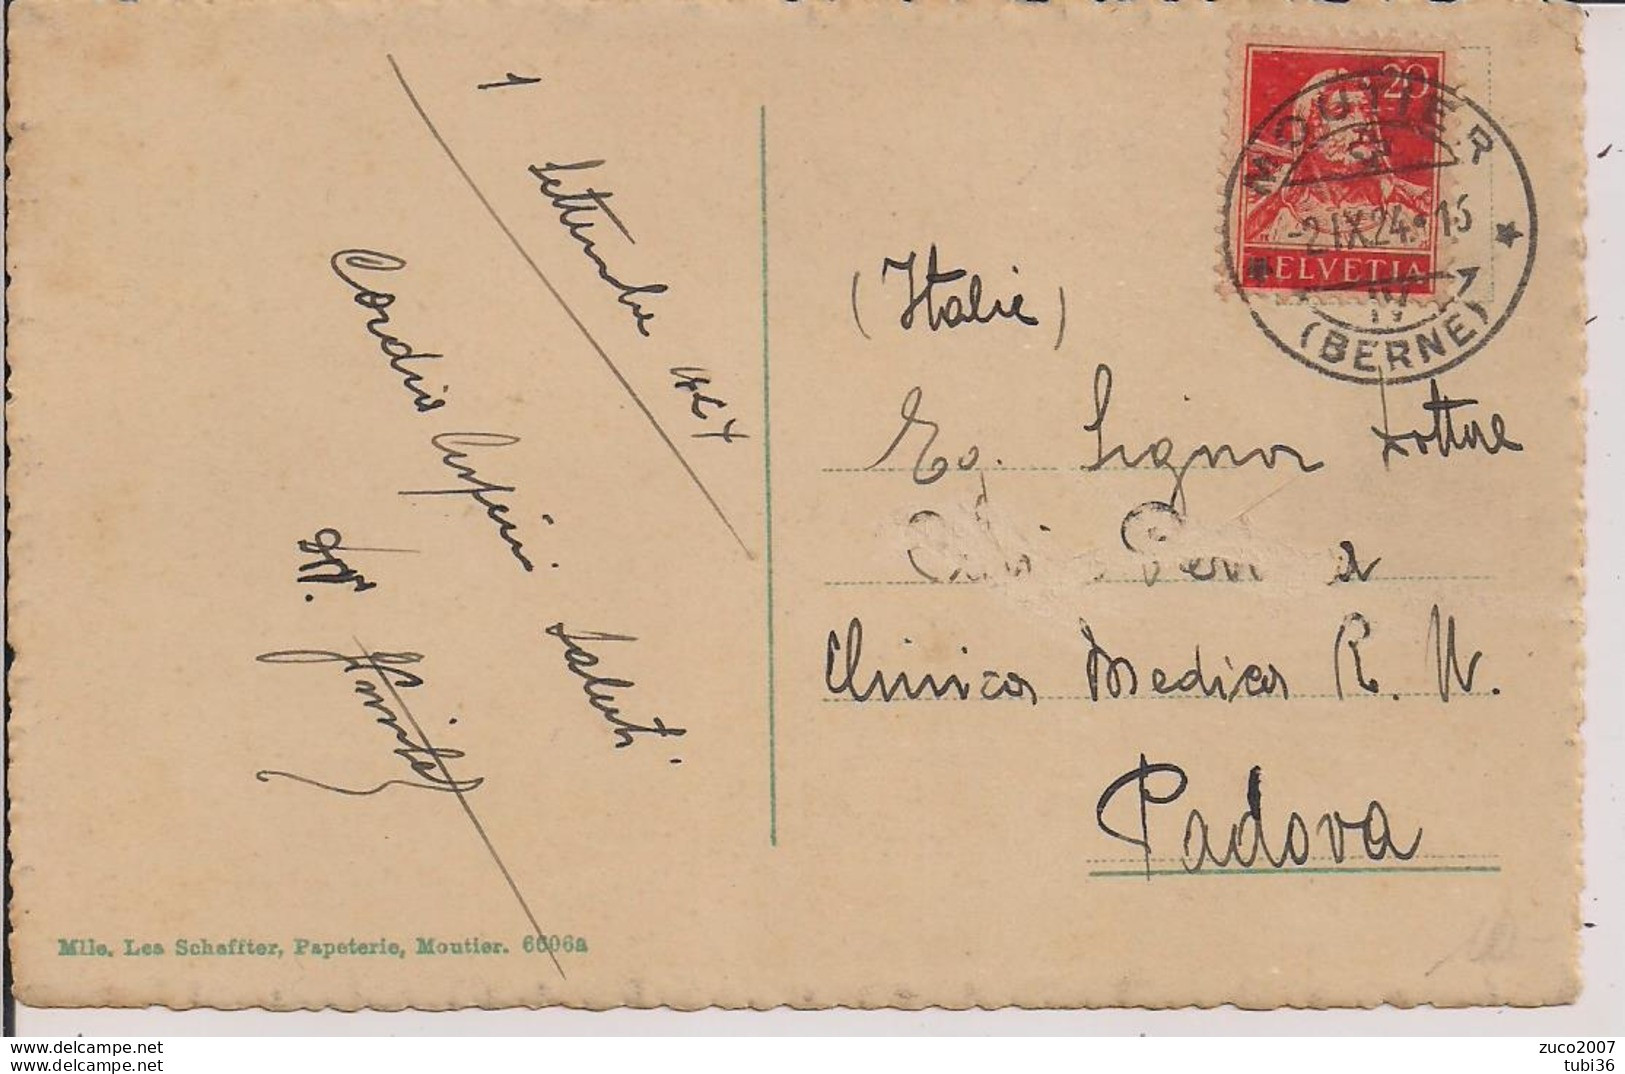 1 Settembre 1924
Cordiali saluti
20
HELVETIA
MOUTIER
-2.IX.24.-15
IV
(BERNE)
(Italie)
Eg. Signor Dottore
Clinica Medica R. U.
Padova
Mlle. Lea Schaffter, Papeterie, Moutier. 6606a
www.delcampe.net
www.delcampe.net
zuco2007
tubi36